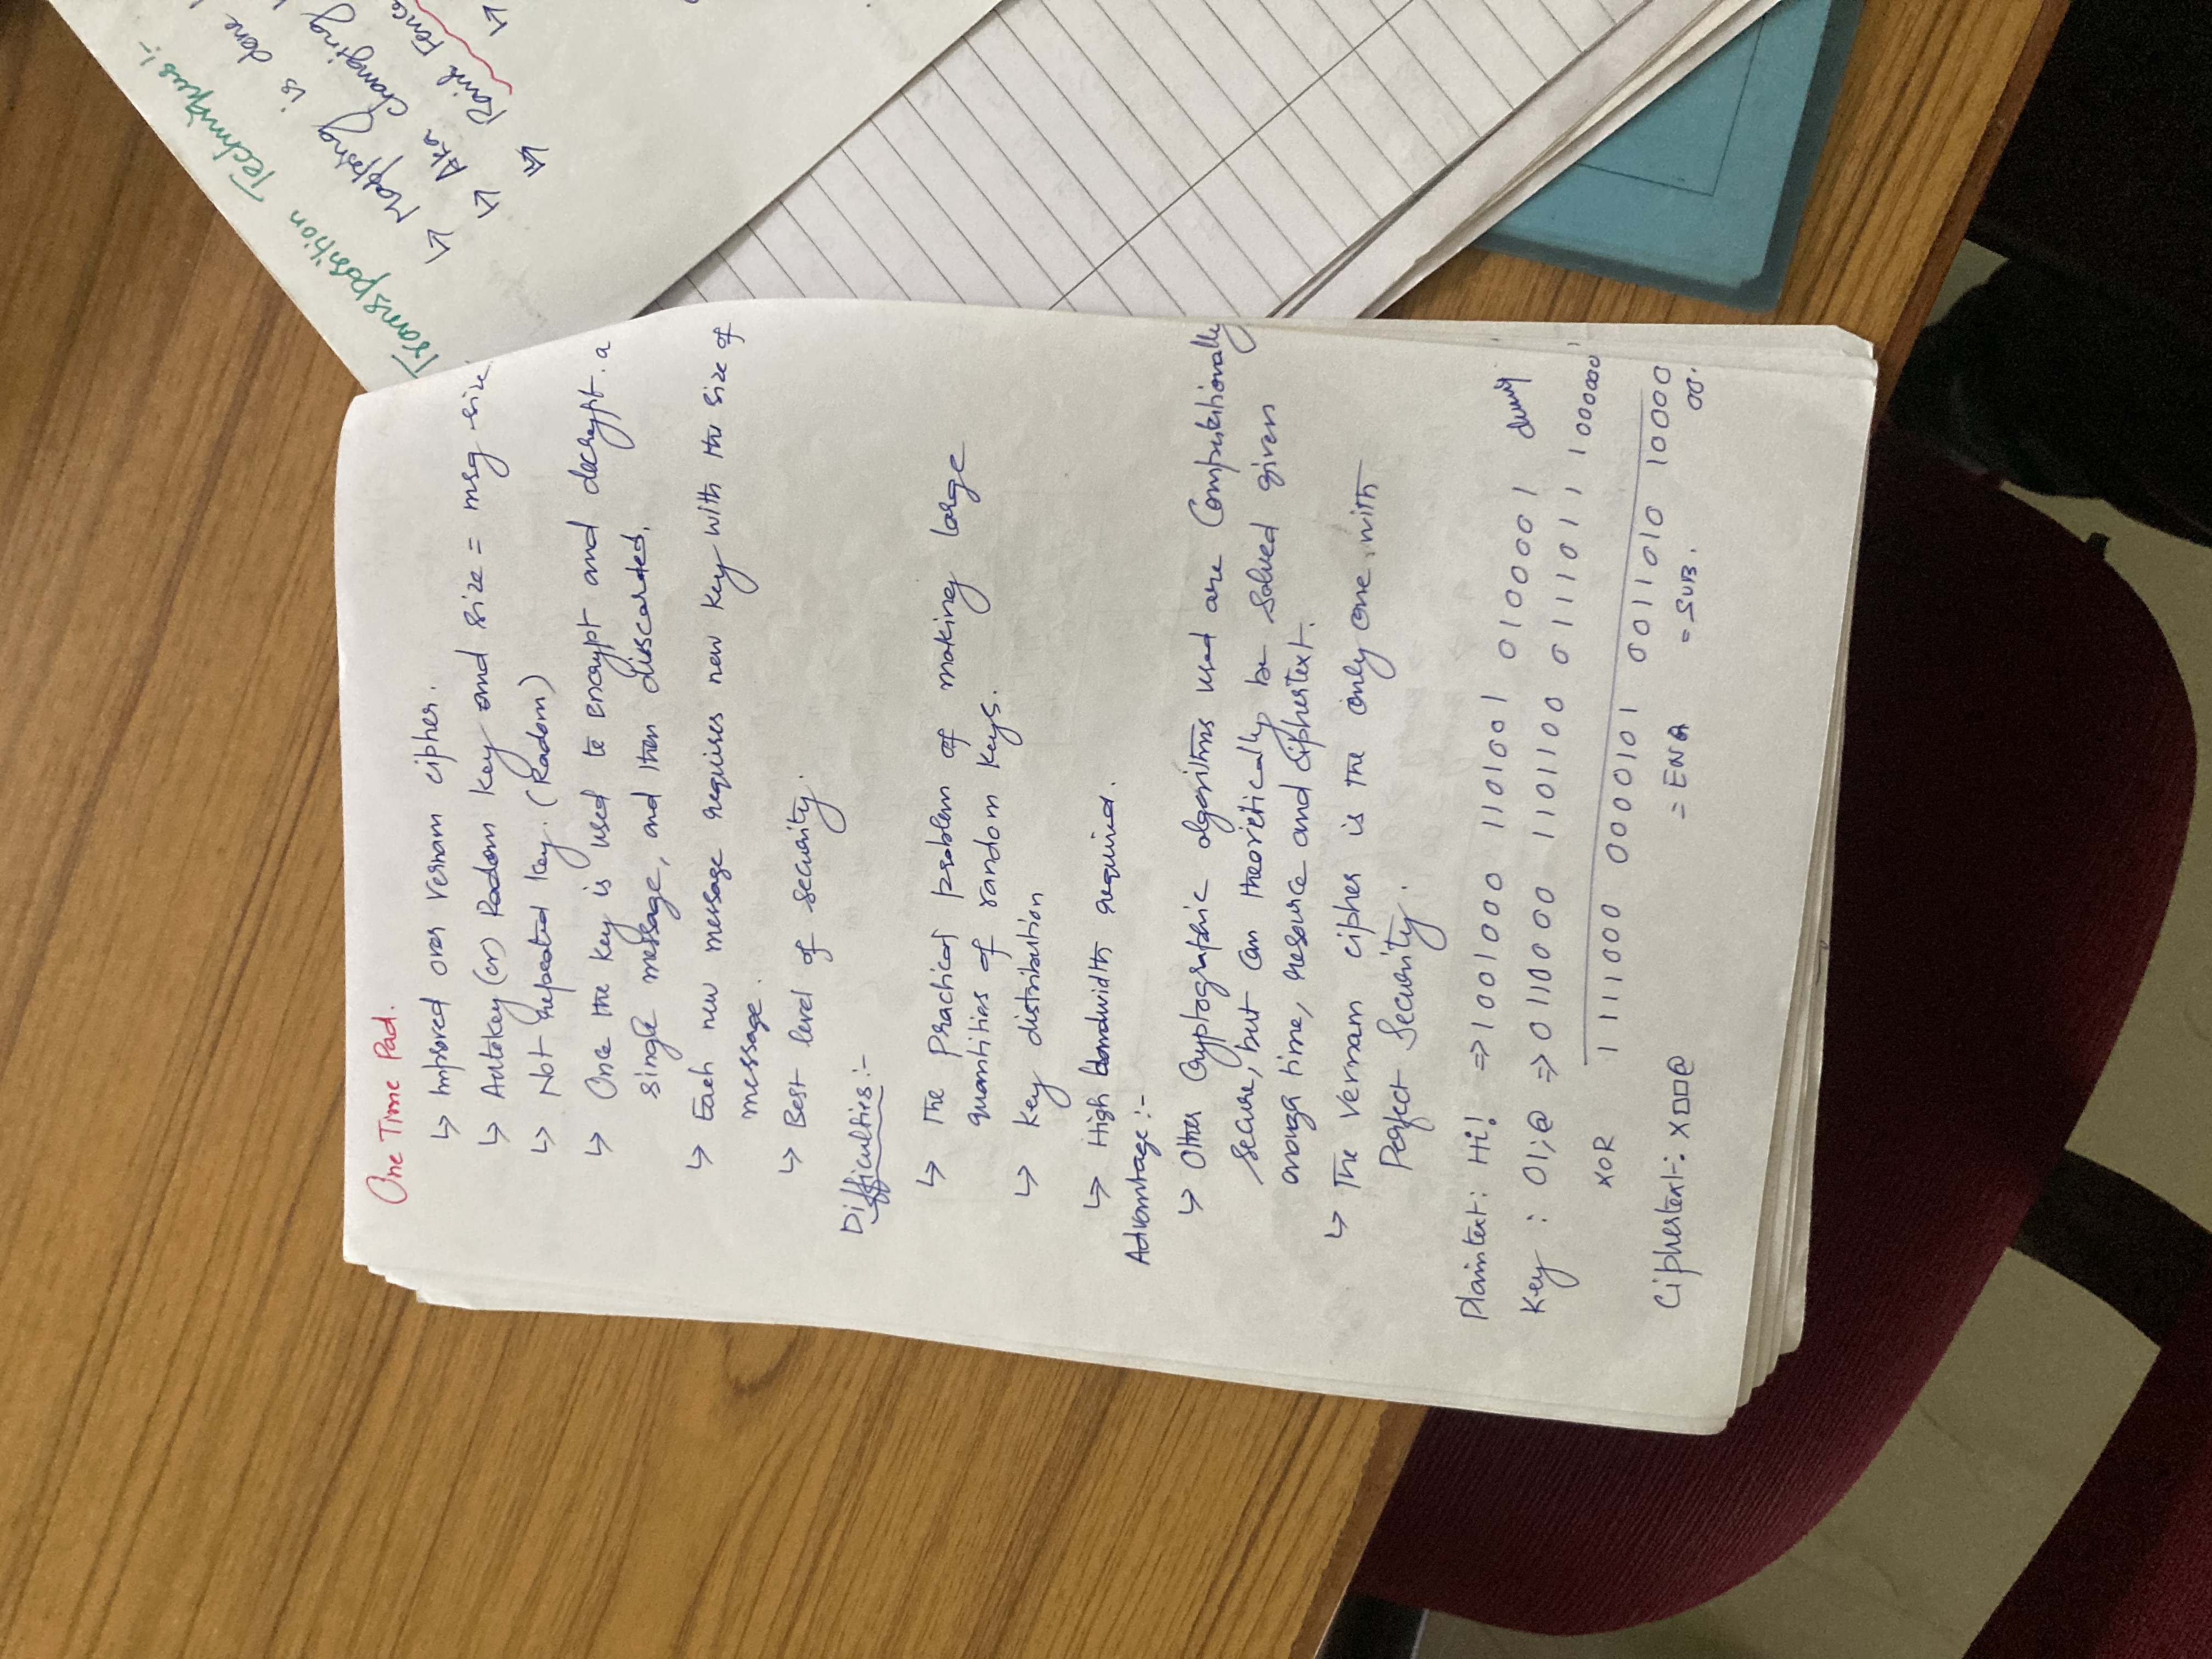 One Time Pad.
↳ Improved over Vernam cipher.
↳ Autokey (or) Radom key and size = msg size
↳ Not repeated key. (Radom)
↳ Once the key is used to encrypt and decrypt. a
single message, and then disscarded.
↳ Each new message requires new key with the size of
message.
↳ Best level of security.
Difficulties :-
↳ The Practical problem of making large
quantities of random keys.
↳ Key distribution
↳ High bandwidth required.
Advantage :-
↳ Other Cryptographic algorithms used are Computationally
secure, but can theoretically be solved given
enough time, resource and ciphertext.
↳ The Vernam cipher is the only one with
Perfect Security.
Plaintext: Hi! => 1001000 1101001 0100001
Key : 01;@ => 0110000 1101100 0111011 1000000
XOR 1111000 0000101 0011010 10000
00.
Ciphertext: X□□@ = ENQ = SUB.
Transposition Techniques:-
↳ Mapping is done
↳ Aka changing
↳ Fence